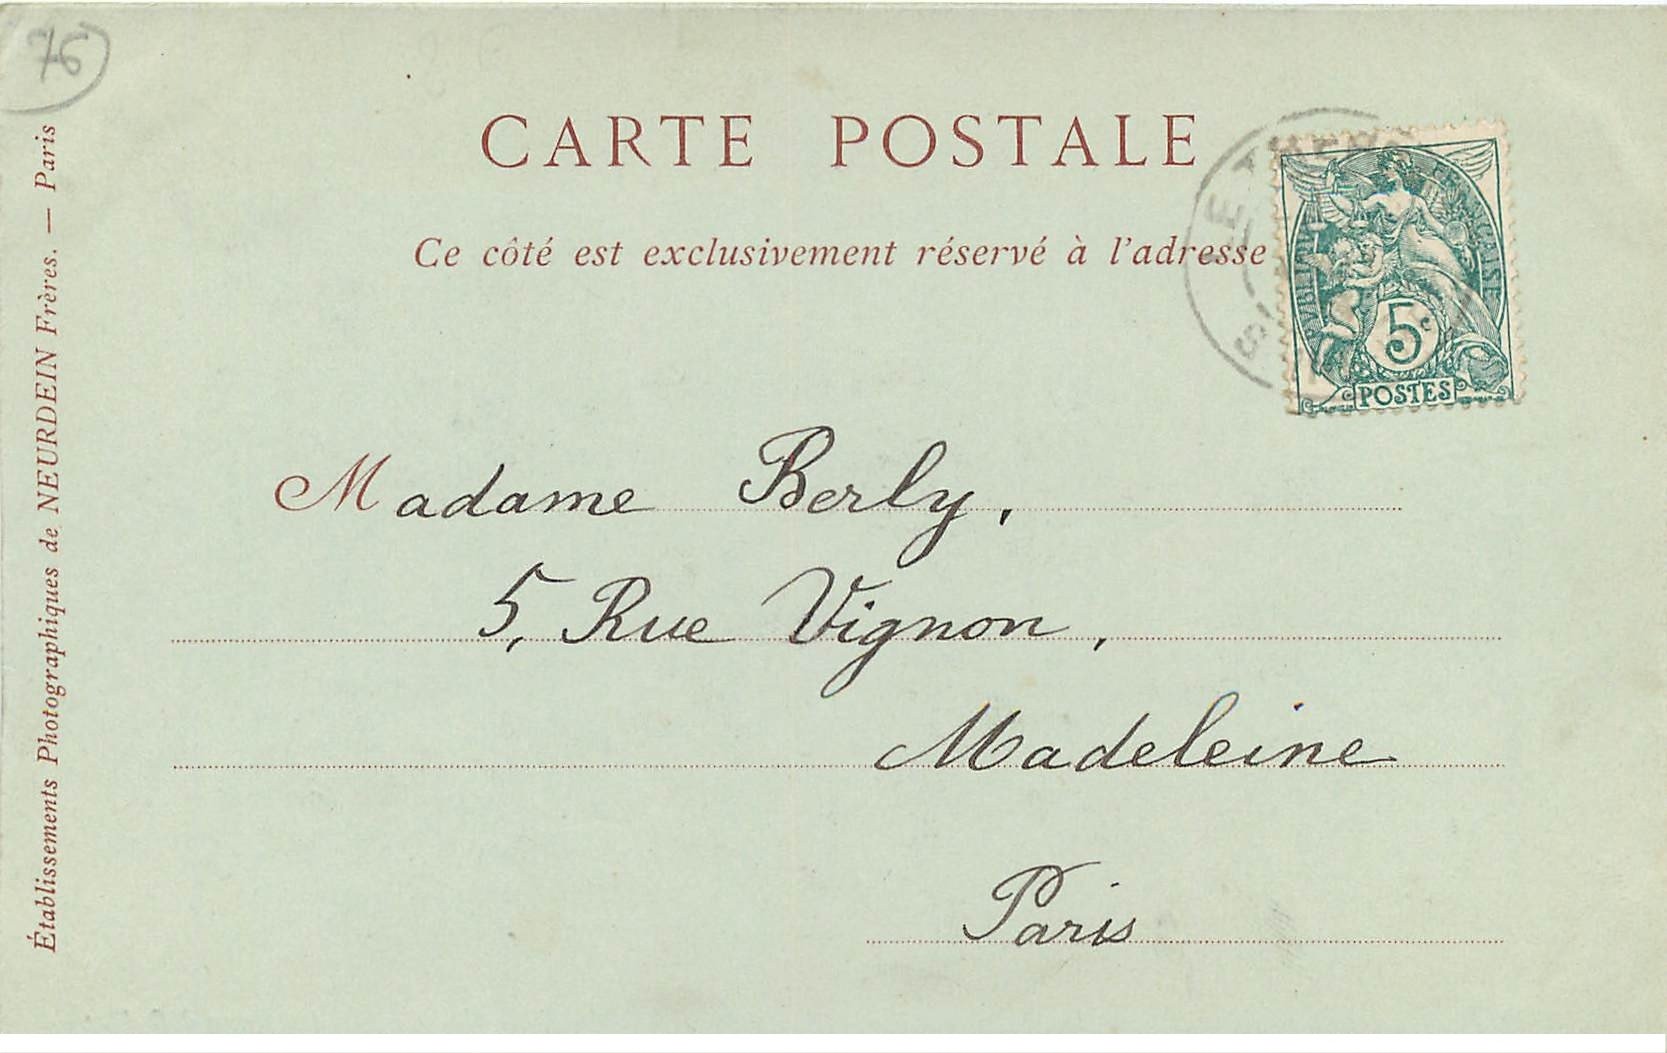 76
CARTE POSTALE
Ce côté est exclusivement réservé à l'adresse
5c
POSTES
Madame Berly,
5, Rue Vignon,
Madeleine
Paris
Établissements Photographiques de NEURDEIN Frères. — Paris